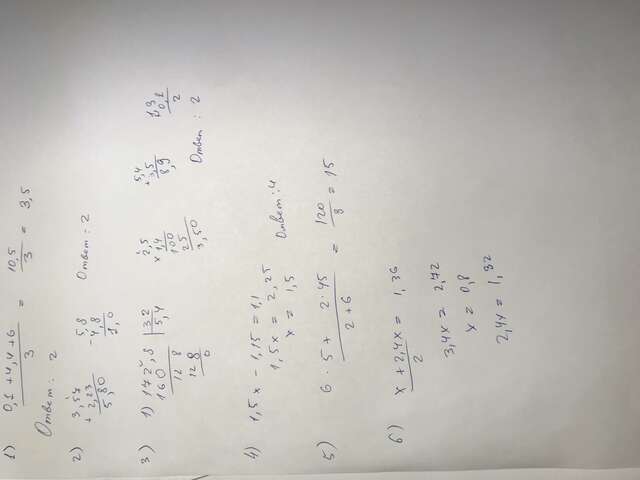 1) 0,1 + 4,4 + 6 / 3 = 10,5 / 3 = 3,5
Ответ: 2
2) 3,57 + 2,23 5,80
5,8 - 4,8 1,0
Ответ: 2
3) 1) 172,8 | 32
160 5,4
12 8
12 8
0
2,5 × 1,4 100 25 3,50
5,4 + 3,5 8,9
Ответ: 2
4) 1,5x - 1,15 = 1,1
1,5x = 2,25
x = 1,5
Ответ: 4
5) 6 · 5 + 2 · 45 / 2 + 6 = 120 / 8 = 15
6) x + 2,4x / 2 = 1,36
3,4x = 2,72
x = 0,8
2,4x = 1,92